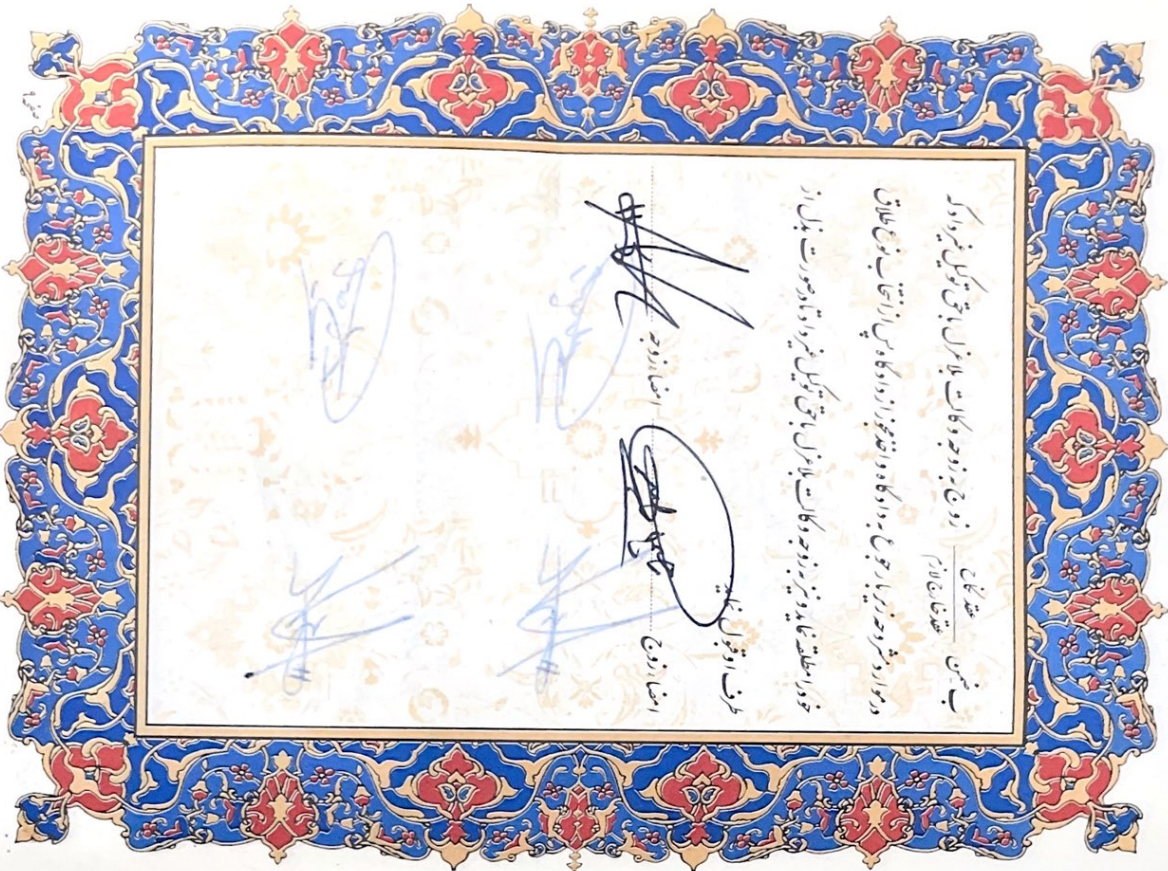 ب‌ضمن عقد نکاح / عقد خارج لازم زوج به زوجه وکالت بلاعزل با حق توکیل غیر داد که
در موارد مشروحه زیر با رجوع به دادگاه و اخذ مجوز از دادگاه پس از انتخاب نوع طلاق
خود را مطلقه نماید و نیز به زوجه وکالت بلاعزل با حق توکیل غیر داد تا در صورت بذل از
طرف او قبول نماید
امضاء زوج امضاء زوجه